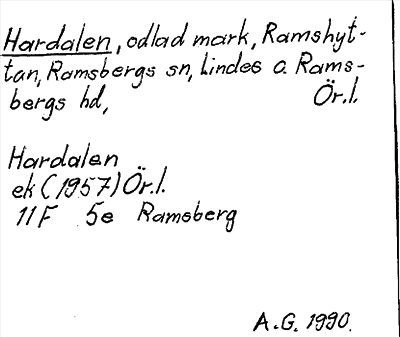 Hardalen, odlad mark, Ramshyt-
tan, Ramsbergs sn, Lindes o. Rams-
bergs hd, Ör.l.
Hardalen
ek (1957) Ör.l.
11F 5e Ramsberg
A.G. 1990.